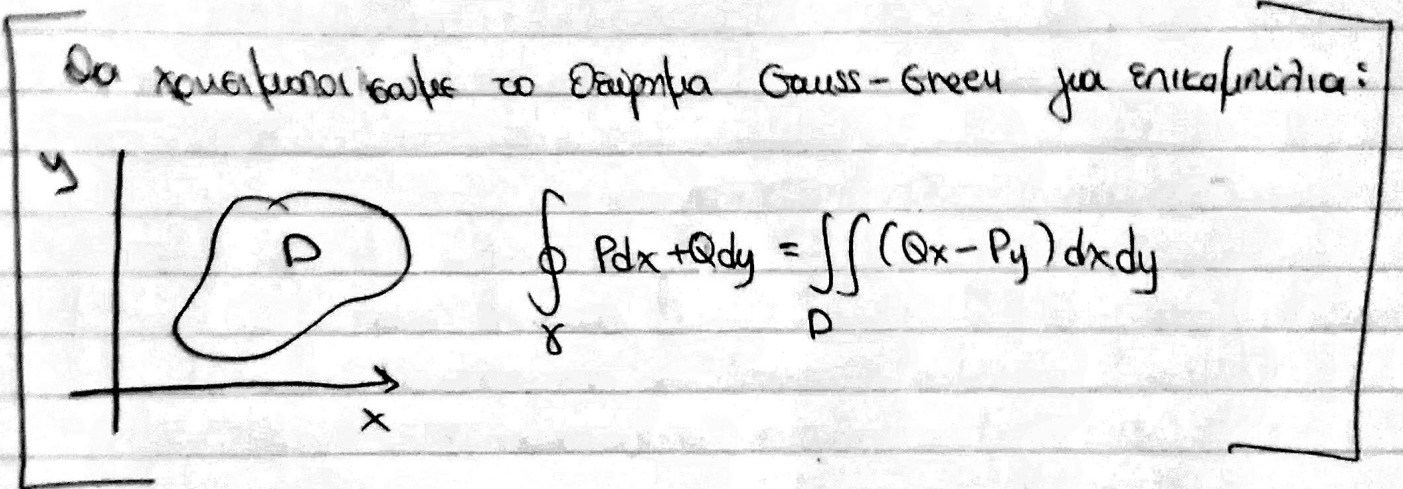 Θα χρησιμοποιήσουμε το Θεώρημα Gauss-Green για επικαμπύλια:
y
D
∮ Pdx+Qdy = ∬ (Qx-Py) dxdy
γ D
x